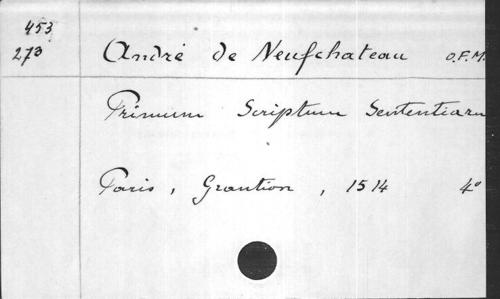 453
273 André de Neufchateau O.F.M.
Primum Scriptum Sententiaru
Paris, Grantion, 1514 4°